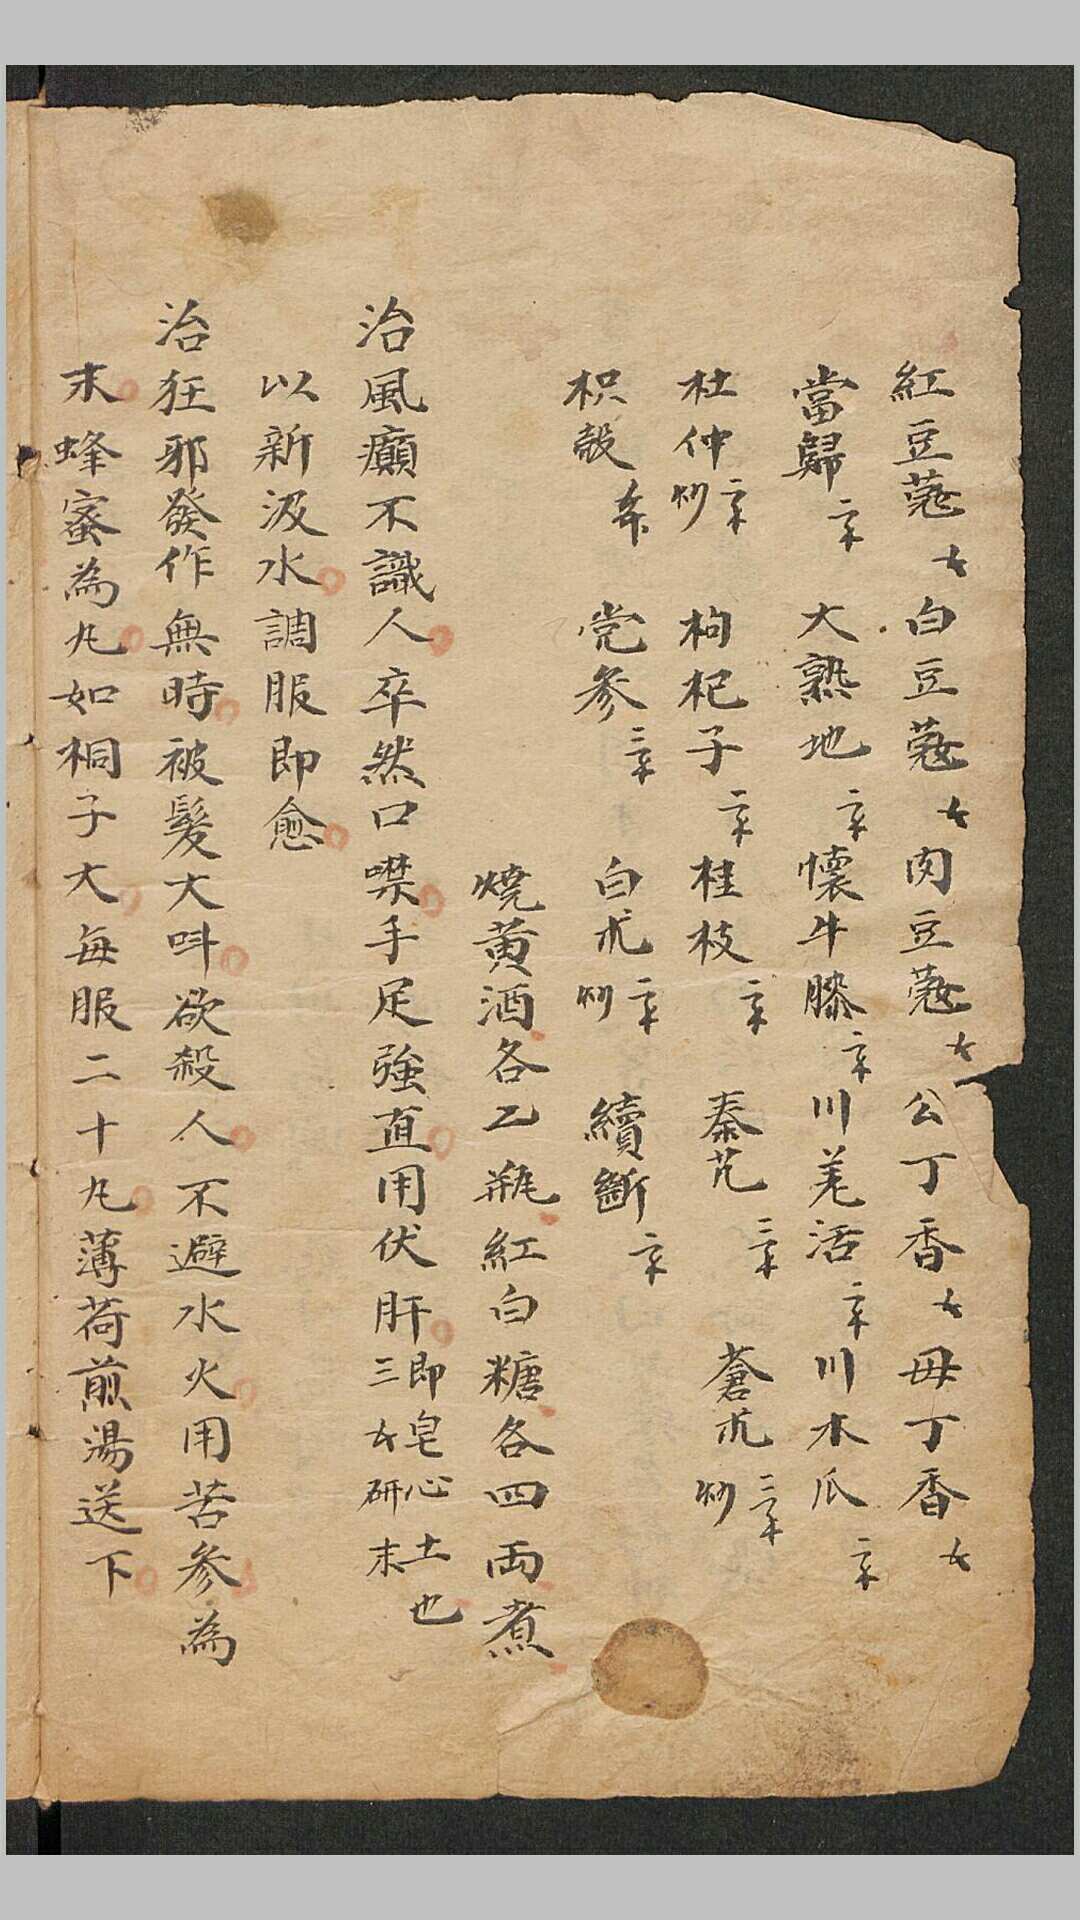 紅豆蔻 白豆蔻 肉豆蔻 公丁香 毋丁香
當歸 大熟地 懷牛膝 川羌活 川木瓜
杜仲炒 枸杞子 桂枝 秦艽 蒼朮炒
枳殼 党參 白朮炒 續斷
燒黃酒各乙瓶紅白糖各四両煮
治風癲不識人卒然口噤手足強直用伏肝即皂心土也三研末
以新汲水調服即愈
治狂邪發作無時被髮大呌欲殺人不避水火用苦參為
末蜂蜜為丸如桐子大每服二十丸薄荷煎湯送下